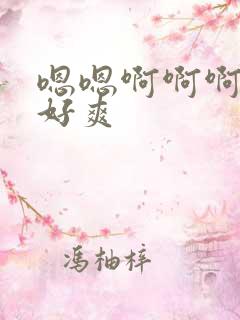 嗯嗯啊啊啊
好爽
冯柚梓